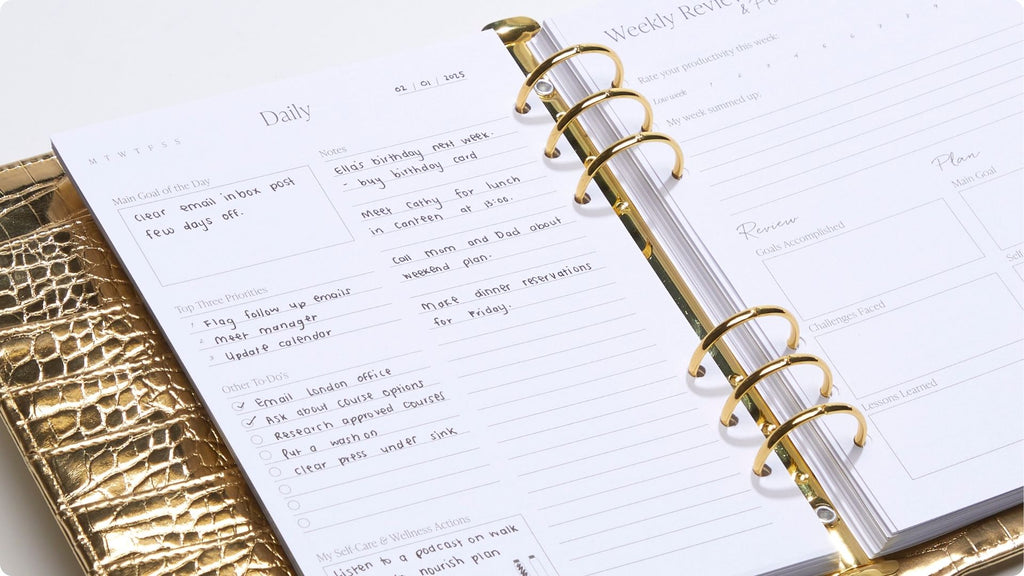 Daily
02 / 01 / 2025
M T W T F S S
Main Goal of the Day
Clear email inbox post
few days off.
Top Three Priorities
1 Flag follow up emails
2 Meet manager
3 Update calendar
Other To-Do's
Email London office
Ask about course options
Research approved courses
Put a wash on
Clear press under sink
My Self Care & Wellness Actions
Listen to a podcast on walk
nourish plan
Notes
Ella's birthday next week.
- buy birthday card
Meet Cathy for lunch
in canteen at 13:00.
Call Mom and Dad about
weekend plan.
More dinner reservations
for Friday.
Weekly Review
&
Rate your productivity this week:
Low week
My week summed up:
Review
Goals Accomplished
Challenges Faced
Lessons Learned
Plan
Main Goal